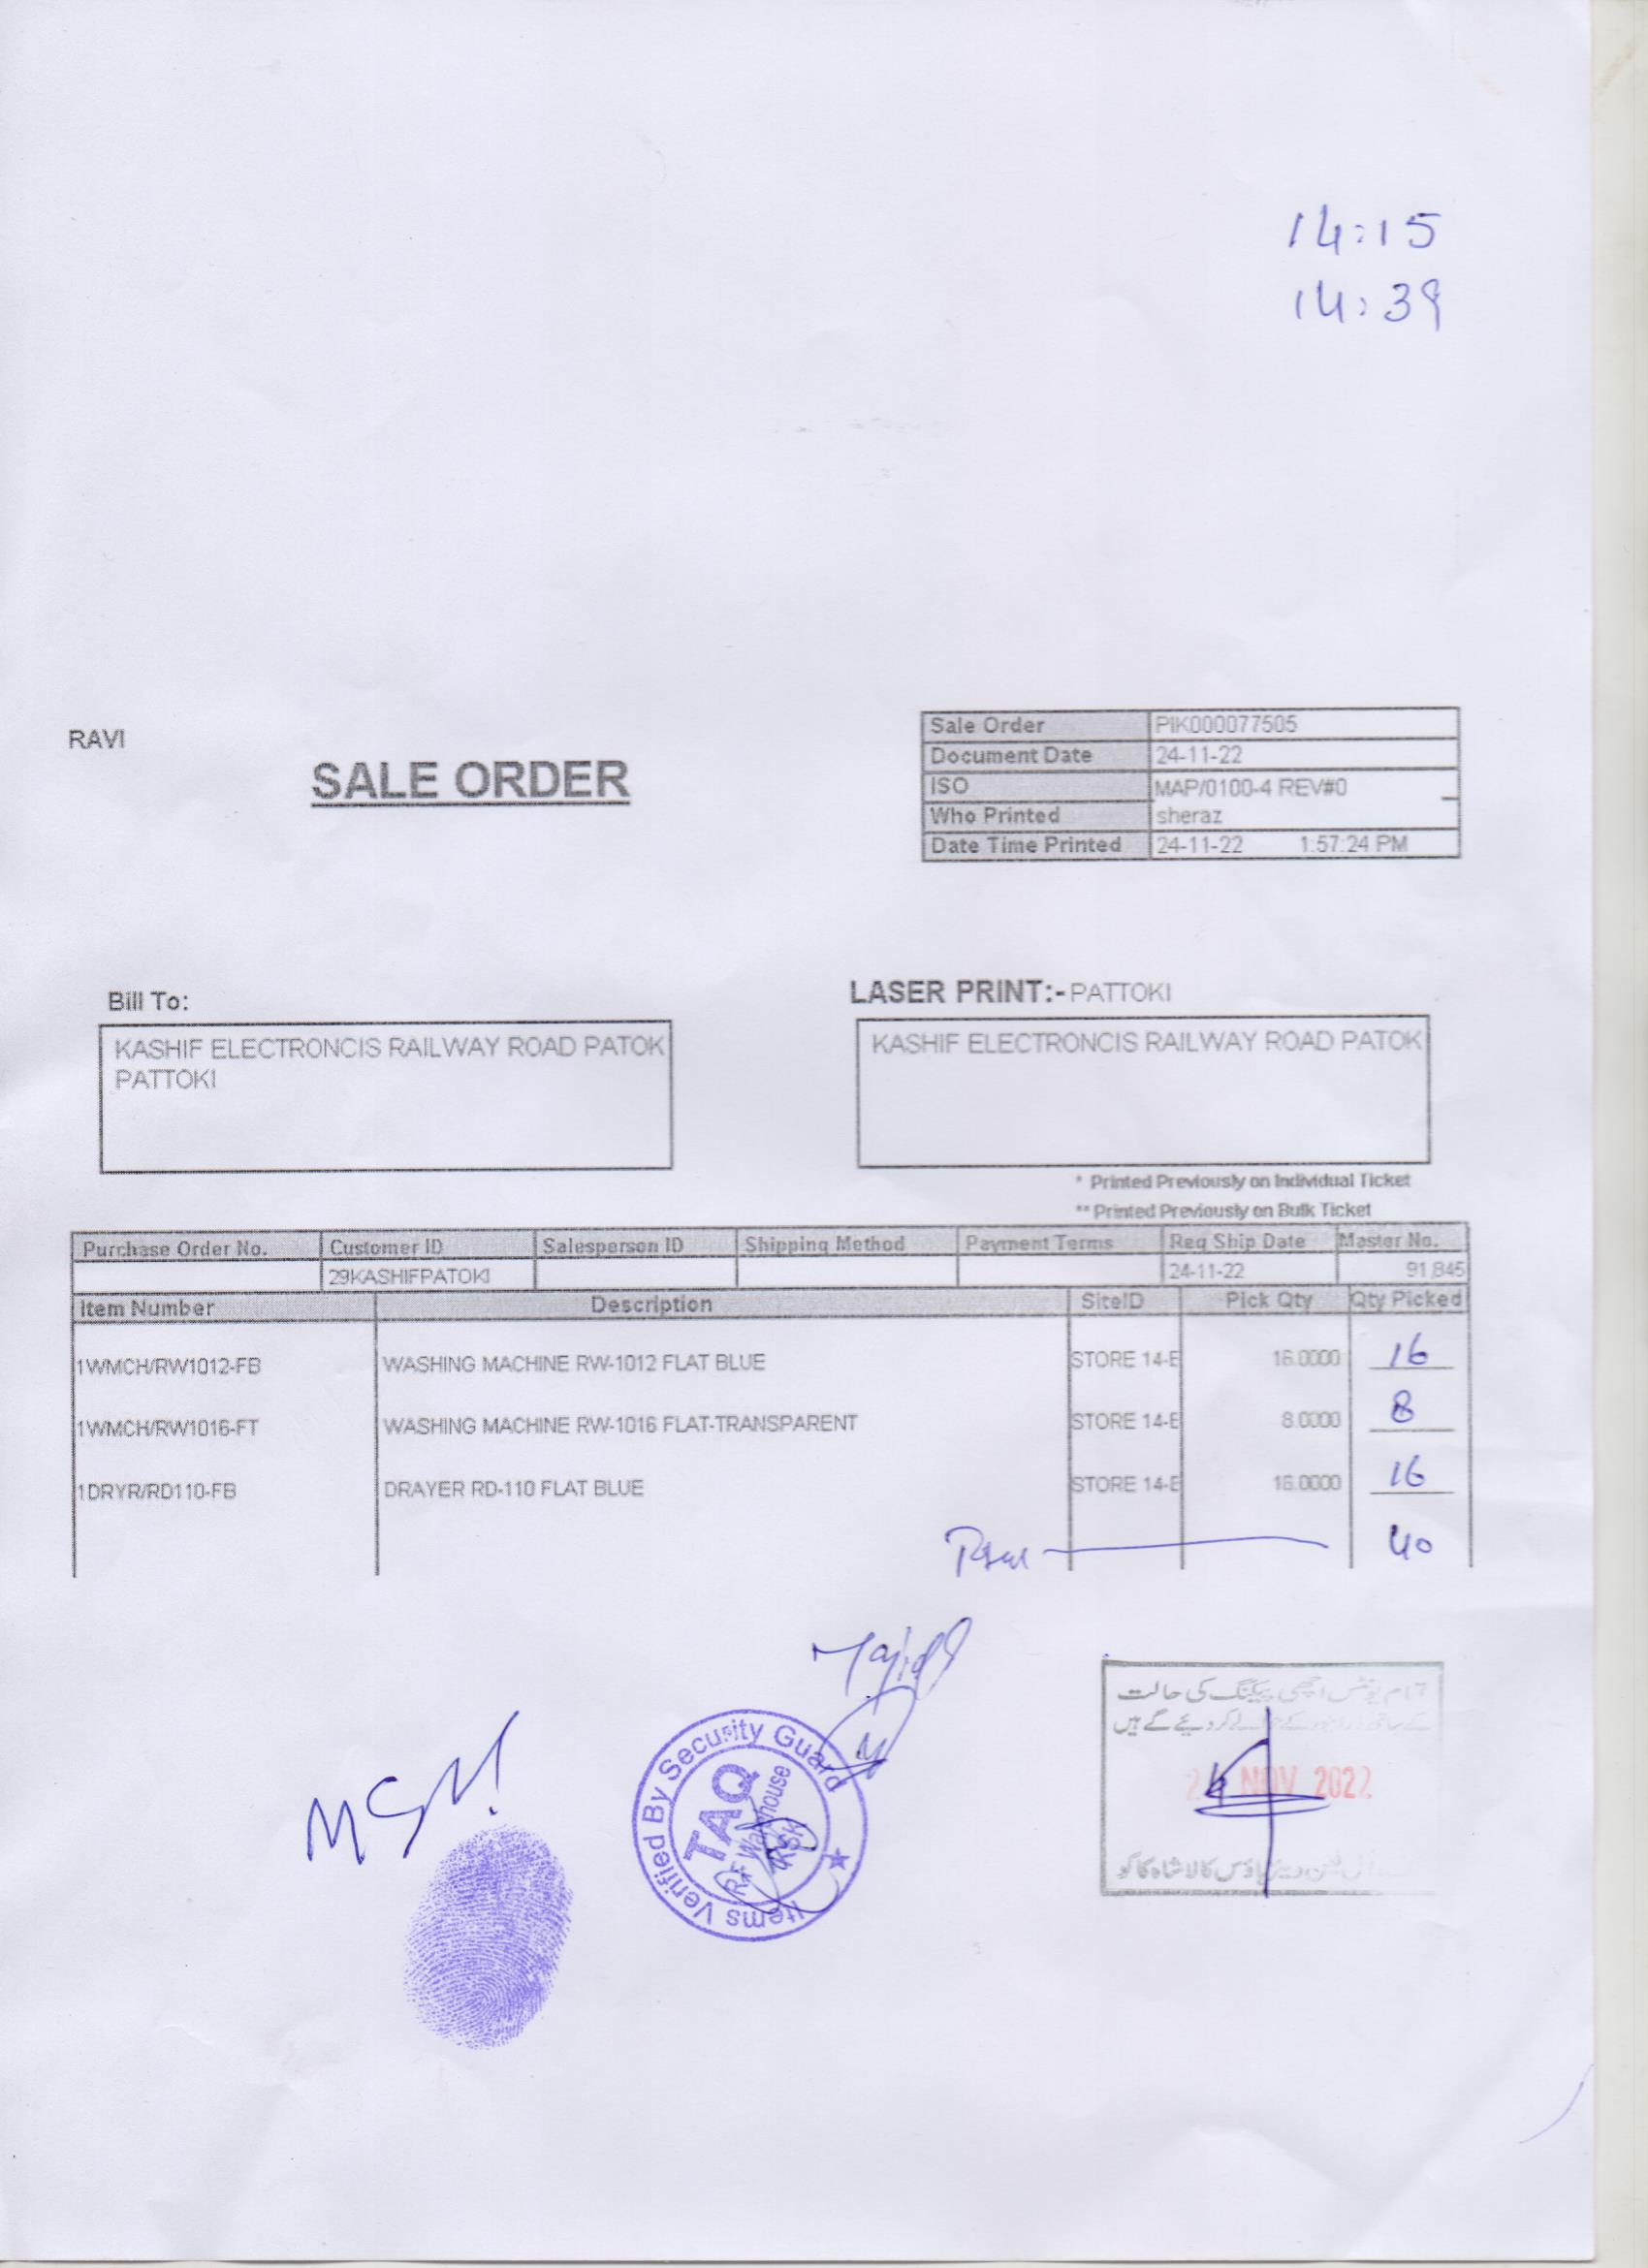 14:15
14:39
RAVI
SALE ORDER
Sale Order PIK000077505
Document Date 24-11-22
ISO MAP/0100-4 REV#0
Who Printed sheraz
Date Time Printed 24-11-22 1:57:24 PM
Bill To:
LASER PRINT:- PATTOKI
KASHIF ELECTRONCIS RAILWAY ROAD PATOK
PATTOKI
KASHIF ELECTRONCIS RAILWAY ROAD PATOK
* Printed Previously on Individual Ticket
** Printed Previously on Bulk Ticket
Purchase Order No. Customer ID Salesperson ID Shipping Method Payment Terms Req Ship Date Master No.
29KASHIFPATOKI 24-11-22 91,845
Item Number Description SiteID Pick Qty Qty Picked
1WMCH/RW1012-FB WASHING MACHINE RW-1012 FLAT BLUE STORE 14-E 16.0000 16
1WMCH/RW1016-FT WASHING MACHINE RW-1016 FLAT-TRANSPARENT STORE 14-E 8.0000 8
1DRYR/RD110-FB DRAYER RD-110 FLAT BLUE STORE 14-E 16.0000 16
40
Majid
Items Verified By Security Guard
TAQ
R.F Warehouse
KSK
تمام یونٹس اچھی پیکنگ کی حالت
کر دیئے گئے ہیں
24 NOV 2022
کالا شاہ کاکو